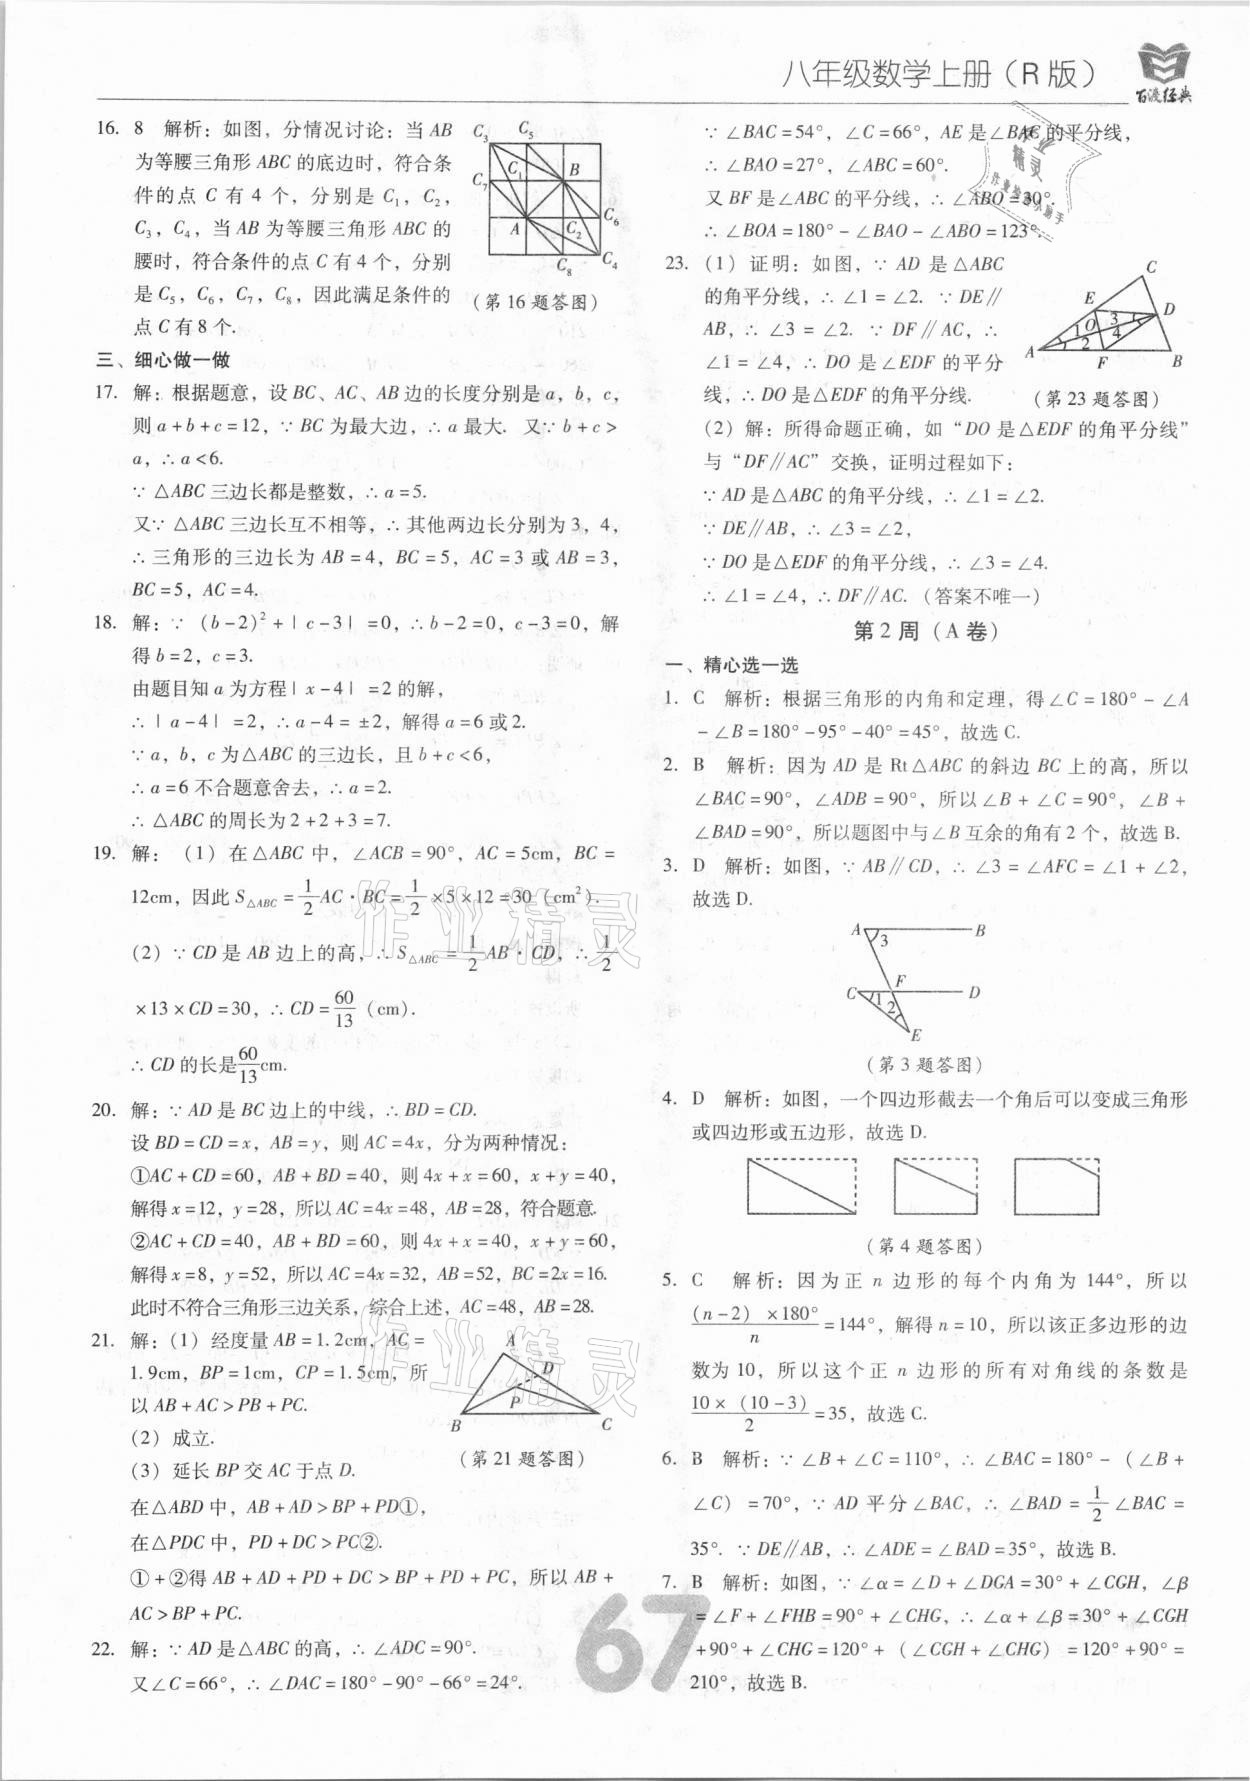 八年级数学上册（R版）
百渡经典
16. 8 解析：如图，分情况讨论：当AB
为等腰三角形ABC的底边时，符合条
件的点C有4个，分别是C₁，C₂，
C₃，C₄，当AB为等腰三角形ABC的
腰时，符合条件的点C有4个，分别
是C₅，C₆，C₇，C₈，因此满足条件的
点C有8个.
C₃ C₅
C₁ B
C₇
C₆
A C₂
C₈ C₄
（第16题答图）
三、细心做一做
17. 解：根据题意，设BC、AC、AB边的长度分别是a，b，c，
则a+b+c=12，∵BC为最大边，∴a最大. 又∵b+c>
a，∴a<6.
∵△ABC三边长都是整数，∴a=5.
又∵△ABC三边长互不相等，∴其他两边长分别为3，4，
∴三角形的三边长为AB=4，BC=5，AC=3或AB=3，
BC=5，AC=4.
18. 解：∵（b-2）²+|c-3|=0，∴b-2=0，c-3=0，解
得b=2，c=3.
由题目知a为方程|x-4|=2的解，
∴|a-4|=2，∴a-4=±2，解得a=6或2.
∵a，b，c为△ABC的三边长，且b+c<6，
∴a=6不合题意舍去，∴a=2.
∴△ABC的周长为2+2+3=7.
19. 解：（1）在△ABC中，∠ACB=90°，AC=5cm，BC=
12cm，因此S△ABC=1/2AC·BC=1/2×5×12=30（cm²）.
（2）∵CD是AB边上的高，∴S△ABC=1/2AB·CD，∴1/2
×13×CD=30，∴CD=60/13（cm）.
∴CD的长是60/13cm.
20. 解：∵AD是BC边上的中线，∴BD=CD.
设BD=CD=x，AB=y，则AC=4x，分为两种情况：
①AC+CD=60，AB+BD=40，则4x+x=60，x+y=40，
解得x=12，y=28，所以AC=4x=48，AB=28，符合题意.
②AC+CD=40，AB+BD=60，则4x+x=40，x+y=60，
解得x=8，y=52，所以AC=4x=32，AB=52，BC=2x=16.
此时不符合三角形三边关系，综合上述，AC=48，AB=28.
21. 解：（1）经度量AB=1.2cm，AC=
1.9cm，BP=1cm，CP=1.5cm，所
以AB+AC>PB+PC.
（2）成立.
（3）延长BP交AC于点D.
A
D
P
B C
（第21题答图）
在△ABD中，AB+AD>BP+PD①，
在△PDC中，PD+DC>PC②.
①+②得AB+AD+PD+DC>BP+PD+PC，所以AB+
AC>BP+PC.
22. 解：∵AD是△ABC的高，∴∠ADC=90°.
又∠C=66°，∴∠DAC=180°-90°-66°=24°.
∵∠BAC=54°，∠C=66°，AE是∠BAC的平分线，
∴∠BAO=27°，∠ABC=60°.
又BF是∠ABC的平分线，∴∠ABO=30°.
∴∠BOA=180°-∠BAO-∠ABO=123°.
23. （1）证明：如图，∵AD是△ABC
的角平分线，∴∠1=∠2. ∵DE∥
AB，∴∠3=∠2. ∵DF∥AC，∴
∠1=∠4，∴DO是∠EDF的平分
线，∴DO是△EDF的角平分线.
C
E
D
1 O 3
2 4
A F B
（第23题答图）
（2）解：所得命题正确，如“DO是△EDF的角平分线”
与“DF∥AC”交换，证明过程如下：
∵AD是△ABC的角平分线，∴∠1=∠2.
∵DE∥AB，∴∠3=∠2，
∵DO是△EDF的角平分线，∴∠3=∠4.
∴∠1=∠4，∴DF∥AC.（答案不唯一）
第2周（A卷）
一、精心选一选
1. C 解析：根据三角形的内角和定理，得∠C=180°-∠A
-∠B=180°-95°-40°=45°，故选C.
2. B 解析：因为AD是Rt△ABC的斜边BC上的高，所以
∠BAC=90°，∠ADB=90°，所以∠B+∠C=90°，∠B+
∠BAD=90°，所以题图中与∠B互余的角有2个，故选B.
3. D 解析：如图，∵AB∥CD，∴∠3=∠AFC=∠1+∠2，
故选D.
A 3 B
F
C 1 D
2
E
（第3题答图）
4. D 解析：如图，一个四边形截去一个角后可以变成三角形
或四边形或五边形，故选D.
（第4题答图）
5. C 解析：因为正n边形的每个内角为144°，所以
（n-2）×180°/n=144°，解得n=10，所以该正多边形的边
数为10，所以这个正n边形的所有对角线的条数是
10×（10-3）/2=35，故选C.
6. B 解析：∵∠B+∠C=110°，∴∠BAC=180°-（∠B+
∠C）=70°，∵AD平分∠BAC，∴∠BAD=1/2∠BAC=
35°. ∵DE∥AB，∴∠ADE=∠BAD=35°，故选B.
7. B 解析：如图，∵∠α=∠D+∠DGA=30°+∠CGH，∠β
=∠F+∠FHB=90°+∠CHG，∴∠α+∠β=30°+∠CGH
+90°+∠CHG=120°+（∠CGH+∠CHG）=120°+90°=
210°，故选B.
67
作业精灵
作业精灵
作业精灵